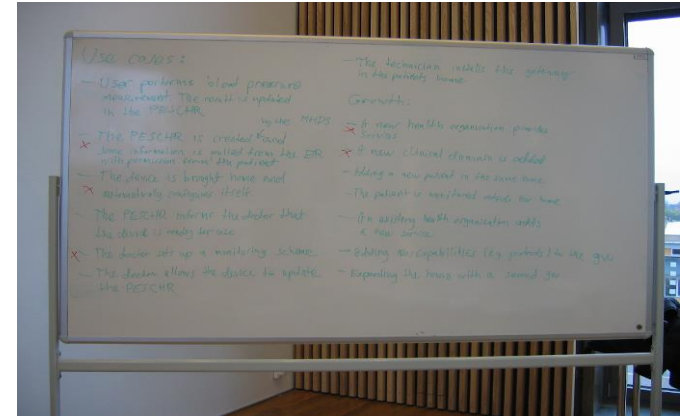 Use cases:
- User performs blood pressure
measurement. The result is updated
in the PESCHR
by the MHDS
- The PESCHR is created and
some information is pulled from the EPR
with permission from the patient
- The device is brought home and
automatically configures itself
- The PESCHR informs the doctor that
the device is ready for use
- The doctor sets up a monitoring scheme
- The doctor allows the device to update
the PESCHR
- The technician installs the gateway
in the patients home.
Growth:
- A new health organisation provides
services
- A new clinical domain is added
- Adding a new patient in the same home
- The patient is monitored outside the home
- An existing health organisation adds
a new service
- Adding new capabilities (e.g. protocols) to the
- Expanding the home with a second